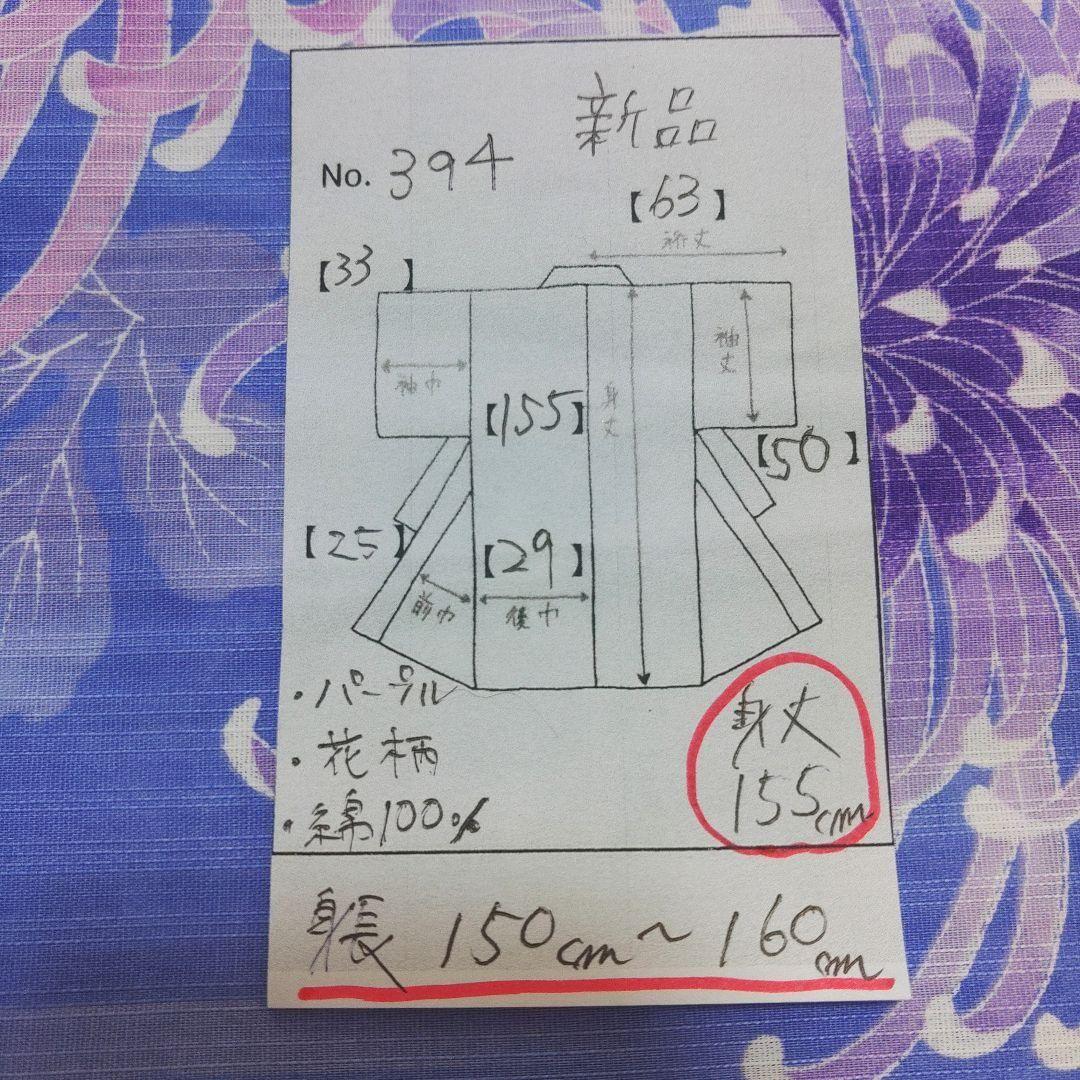 新品
No. 394
【63】
裄丈
【33】
袖巾
袖丈
身丈
【155】
【50】
【25】
【29】
前巾
後巾
・パープル
・花柄
・綿100%
身丈
155cm
身長 150cm~160cm